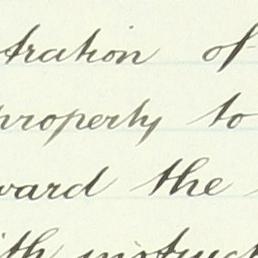 tration of
property to
ward the
ith instruct